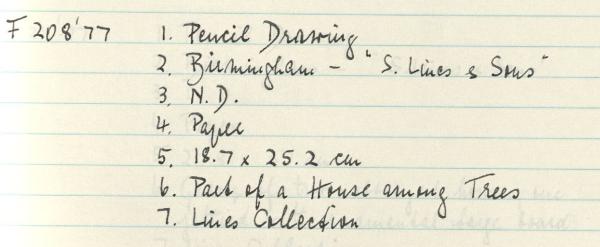 F 208'77 1. Pencil Drawing
2. Birmingham - "S. Lines & Sons"
3. N.D.
4. Paper
5. 18.7 x 25.2 cm
6. Part of a House among Trees
7. Lines Collection